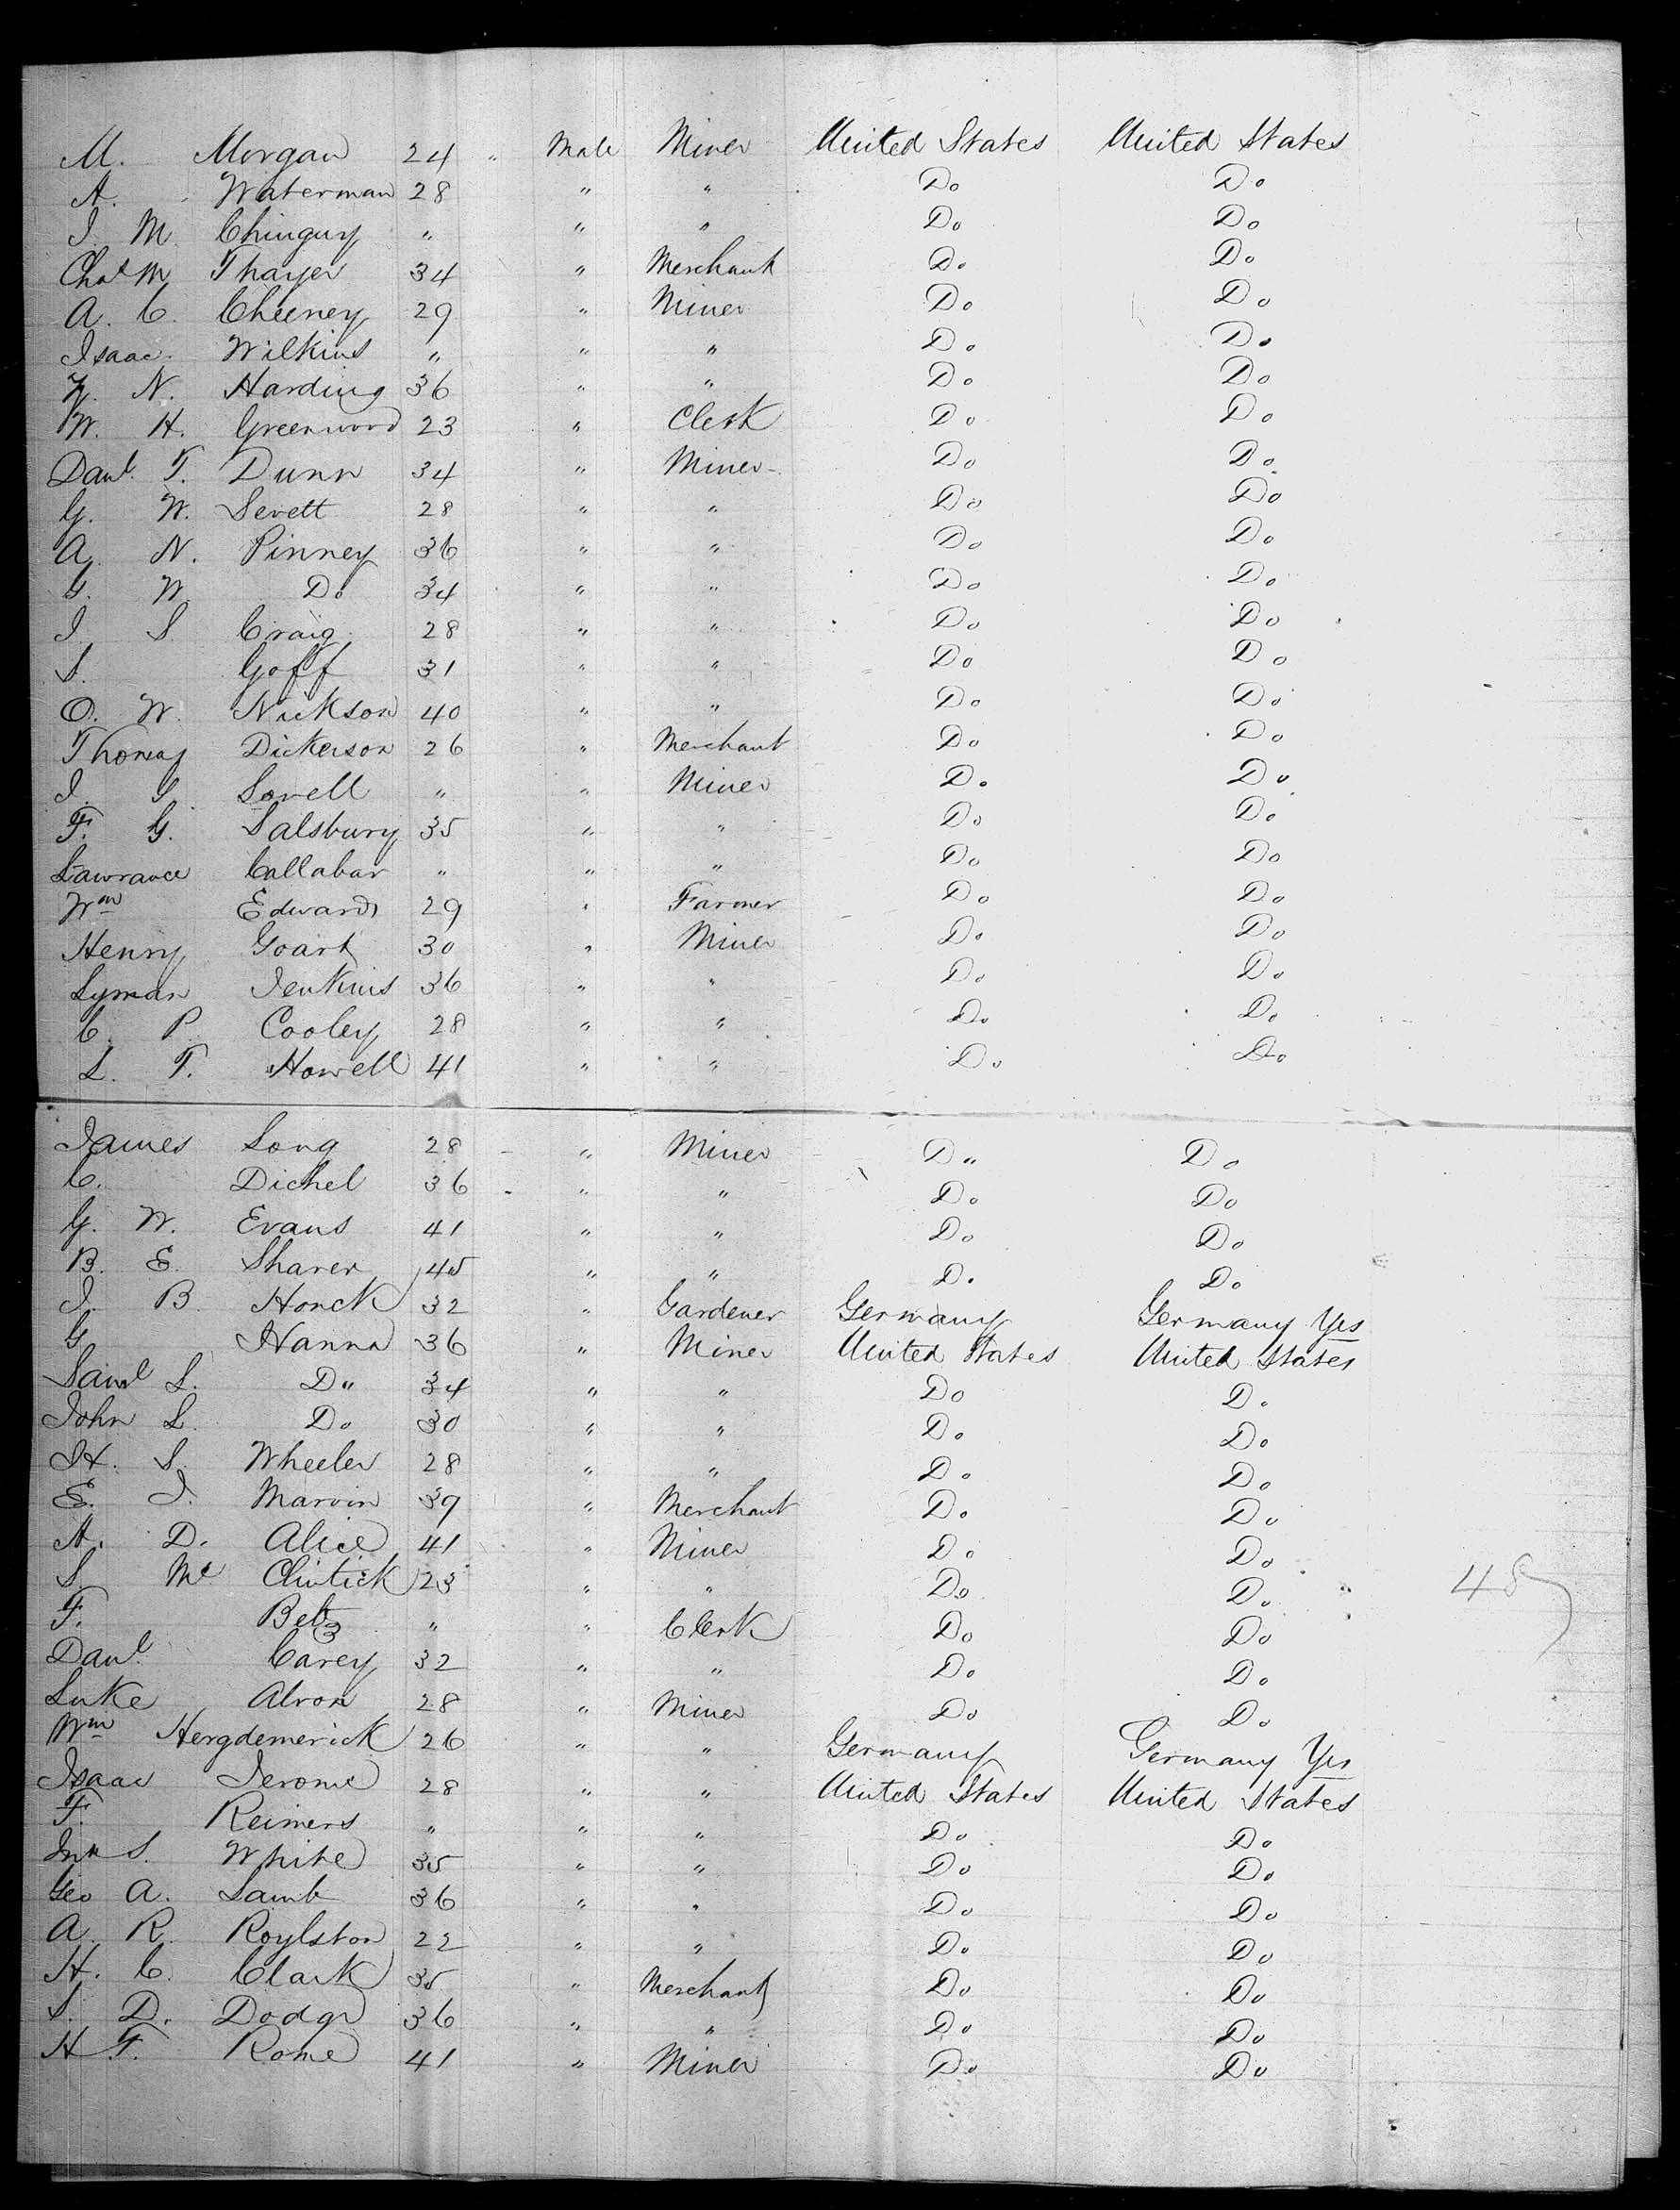 M. Morgan 24 " Male Miner United States United States
A. Waterman 28 " " Do Do
J. M. Chinguy " " " Do Do
Chas M Thayer 34 " Merchant Do Do
A. C. Cheeney 29 " Miner Do Do
Isaac Wilkins " " " Do Do
N. Harding 36 " " Do Do
W. H. Greenwood 23 " Clerk Do Do
Danl. T. Dunn 34 " Miner Do Do
G. W. Sevett 28 " " Do Do
A. N. Pinney 36 " " Do Do
G. W. Do 34 " " Do Do
J S Craig 28 " " Do Do
S. Goff 31 " " Do Do
O. W. Nickson 40 " " Do Do
Thomas Dickerson 26 " Merchant Do Do
J. S. Lovell " " Miner Do Do
F. G. Salsbury 35 " " Do Do
Lawrance Callahan " " " Do Do
Wm Edwards 29 " Farmer Do Do
Henry Goart 30 " Miner Do Do
Lyman Jenkins 36 " " Do Do
C. P. Cooley 28 " " Do Do
L. T. Howell 41 " " Do Do
James Long 28 " Miner Do Do
C. Dichel 36 " " Do Do
G. W. Evans 41 " " Do Do
B. E. Sharer 45 " " Do Do
J. B. Honck 32 " Gardener Germany Germany Yes
G Hanna 36 " Miner United States United States
Saml L. Do 34 " " Do Do
John L. Do 30 " " Do Do
H. S. Wheeler 28 " " Do Do
E. J. Marvin 39 " Merchant Do Do
A. D. Alice 41 " Miner Do Do
S. Mc Clintick 23 " " Do Do
F. Betz " " Clerk Do Do
Danl. Carey 32 " " Do Do
Luke Alron 28 " Miner Do Do
Wm Hergdemerick 26 " " Germany Germany Yes
Isaac Jerome 28 " " United States United States
F. Reimers " " " Do Do
Jno S. White 35 " " Do Do
Geo A. Lamb 36 " " Do Do
A. R. Roylston 22 " " Do Do
H. C. Clark 35 " Merchant Do Do
S. D. Dodge 36 " " Do Do
H F. Rome 41 " Miner Do Do